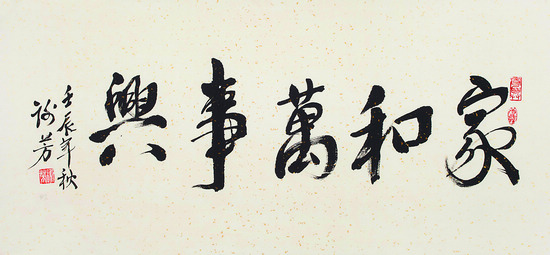 家和萬事興
壬辰年秋
謝芳